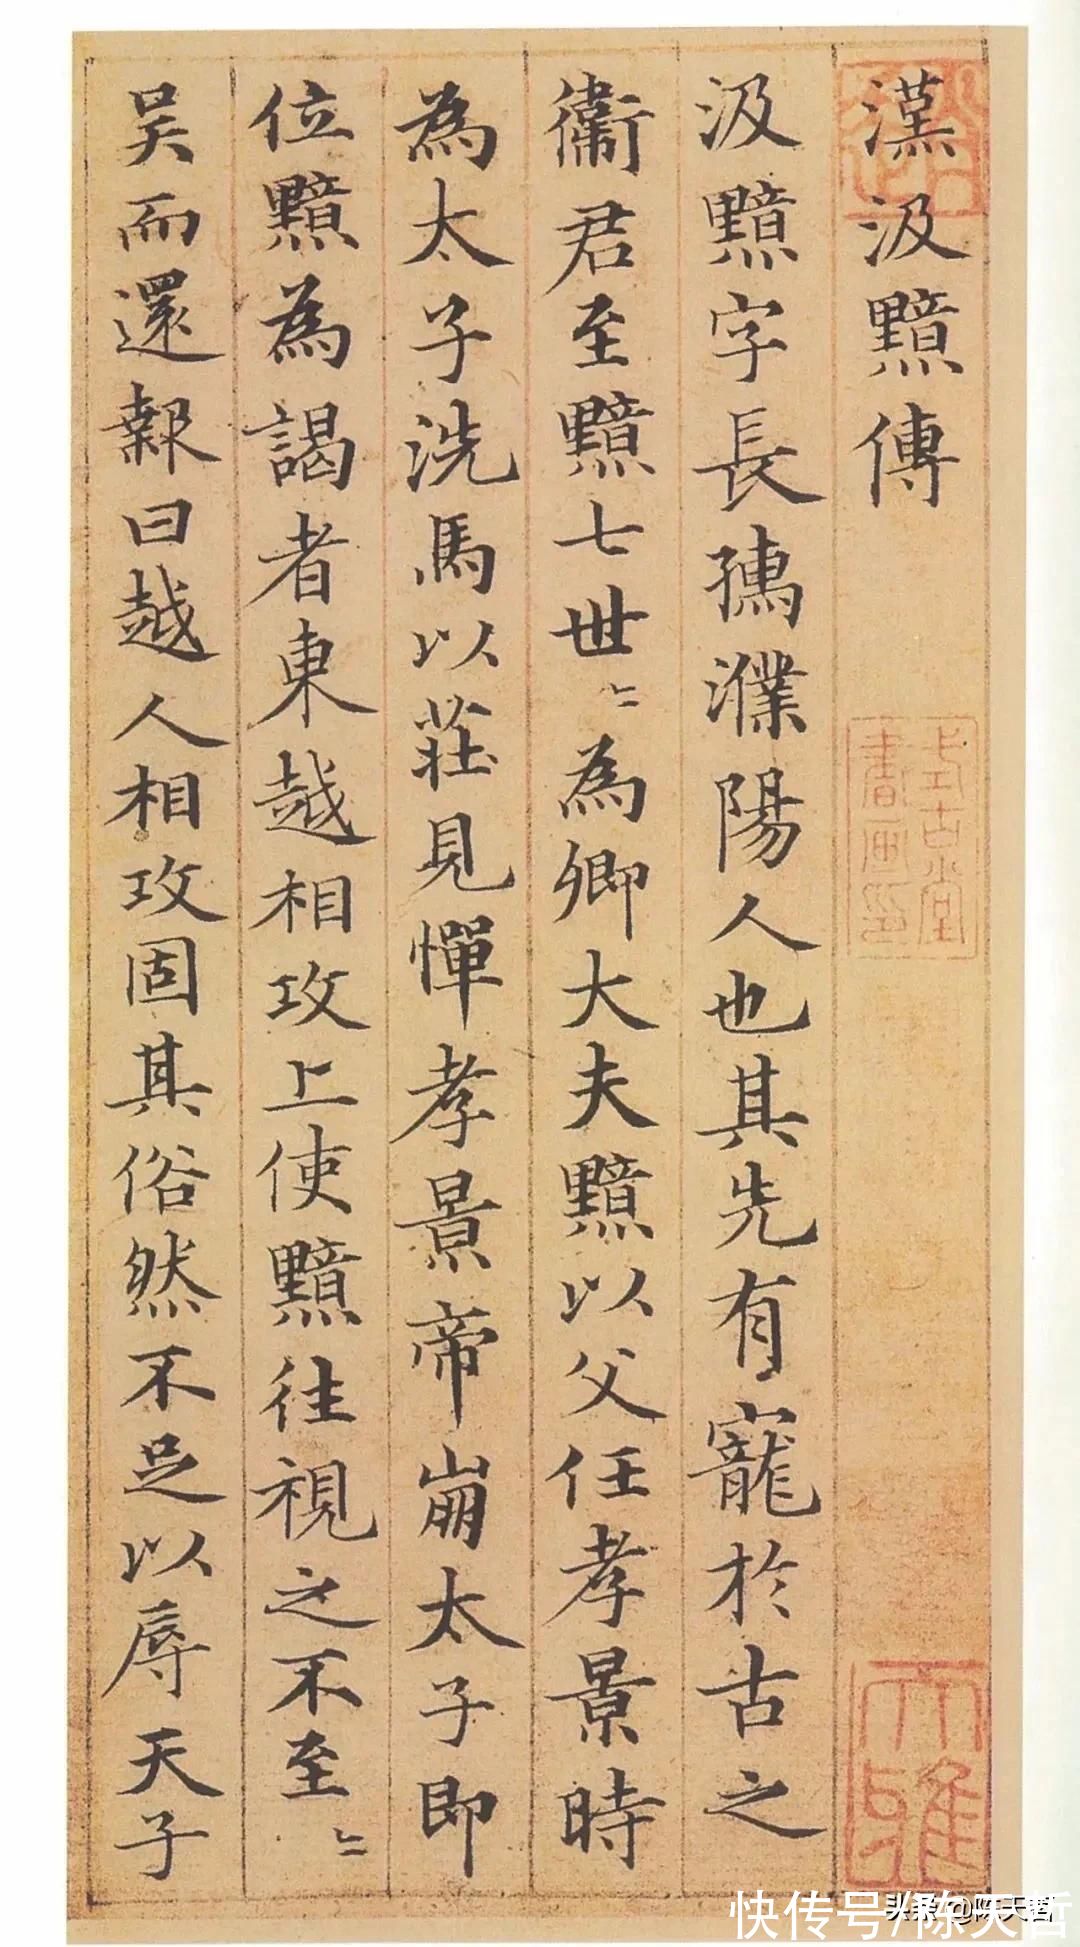 漢汲黯傳
汲黯字長孺濮陽人也其先有寵於古之
衞君至黯七世〻為卿大夫黯以父任孝景時
為太子洗馬以莊見憚孝景帝崩太子即
位黯為謁者東越相攻上使黯往視之不至〻
吴而還報曰越人相攻固其俗然不足以辱天子
式古堂
書画印
大雅
快传号/陈天哲
头条@陈天哲